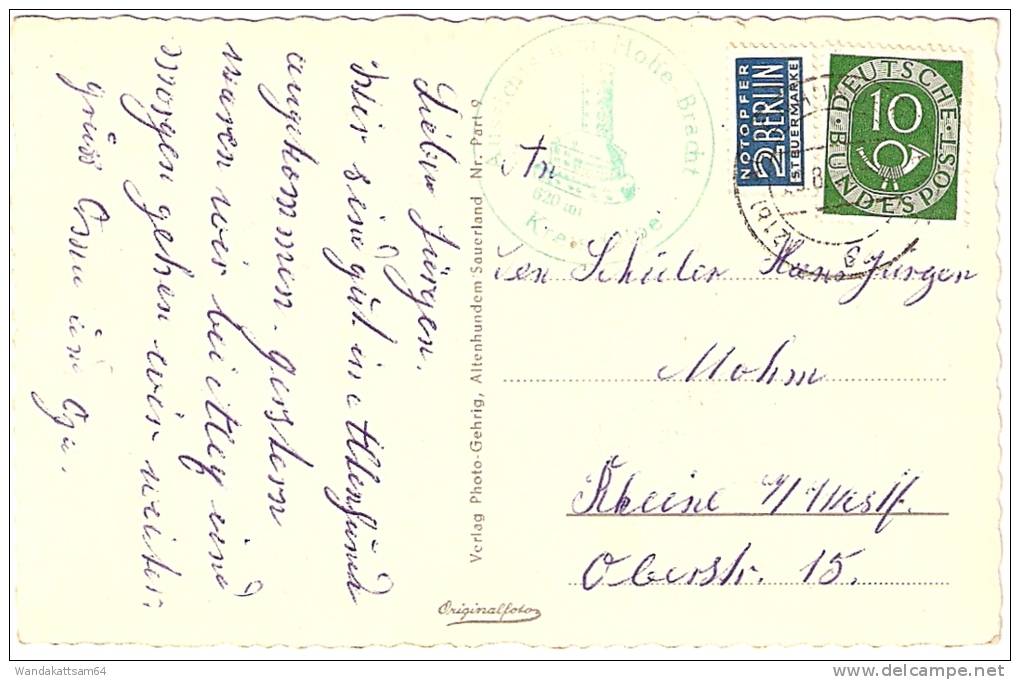 Lieber Jürgen.
Wir sind gut in Altenhund
angekommen. gestern
waren wir bei und
morgen gehen wir weiter.
gruß Omu und Opa.
Verlag Photo-Gehrig, Altenhundem Sauerland Nr. Part 9
Originalfoto
Hohe Bracht
620 m
NOTOPFER
2 BERLIN
STEUERMARKE
DEUTSCHE
BUNDESPOST
10
An
den Schüler Hans Jürgen
Mohm
Rheine i/Westf.
Oberstr. 15.
Wandakattsam64
delcampe.net